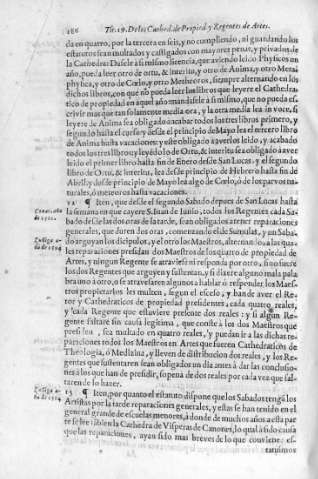 186 Tit. 19. De los Cathed. de Propied. y Regentes de Artes.
da en quatro, por la tercera en seis, y no cumpliendo, ni guardando los
estatutos sean multados y castigados con mayores penas, y privados de
la Cathedra: Dasele a si mismo licencia, que aviendo leido Physicos un
año, pueda leer otro de ortu, & interitu, y otro de Anima, y otro Meta-
physica, y otro de Coelo, y otro Metheoros, siempre alternando en los
dichos libros, con que no pueda leer los libros que leyere el Cathedra-
tico de propiedad aquel año
crivir mas que tan solamente media ora, y la otra media lea in voce, &
leyere de Anima sea obligado acabar todos los tres libros primero, y
segundo hasta el curso y desde el principio de Mayo lea el tercero libro
de Anima hasta vacaciones
todos los tres libros y leyendo de Ortu, & interitu sea obligado a aver
leido el primer libro hasta fin de Enero desde San Lucas, y el segundo
libro de Ortu, & interitu, lea desde principio de Hebrero hasta fin de
Abril, y desde principio de Mayo lea algo de Coelo, ò de los parvos na-
turales, ò meteoros hasta vacaciones.
12 ¶ Iten, que desde el segundo Sabado depues de San Lucas hasta
la semana en que cayere S. Iuan de Iunio, todos los Regentes cada Sa-
bado desde las dos oras de la tarde, sean obligados a tener reparaciones
generales, que duren dos oras, comentando el de Sumulas, y un Saba-
do arguyan los dicipulos, y el otro los Maestros, alternando, a las qua-
les reparaciones presidan dos Maestros de los quatro de propiedad de
Artes, y ningun Regente se atraviese ni responda por otro, sino fuere
los dos Regentes que arguyen y sustentan, y si dixere alguno mala pala
bra uno a otro, o se atravesaren algunos a hablar o responder los Maes-
tros propietarios los multen, segun el exceso, y han de aver el Re-
tor y Cathedraticos de propiedad presidentes, cada quatro reales,
y cada Regente que estuviere presente dos reales: y si algun Re-
gente faltare sin causa legitima, que conste a los dos Maestros que
presiden, sea multado en quatro reales, y puedan ir a las dichas re-
paraciones todos los Maestros en Artes que fueren Cathedraticos de
Theologia, ò Medicina, y lleven de distribucion dos reales, y los Re-
gentes que sustentaren sean obligados un dia antes à dar las conclusio-
nes a los que han de presidir, so pena de dos reales por cada vez que fal-
taren de lo hazer.
13 ¶ Iten, por quanto el estatuto dispone que los Sabados tengã los
Artistas por la tarde reparaciones generales, y estas se han tenido en el
general grande de escuelas menores, à donde de muchos años a esta par
te se lee tãbien la Cathedra de Visperas de Canones, lo qual à sido causa
que las reparaciones, ayan sido mas breves de lo que conviene: es-
tatuimos